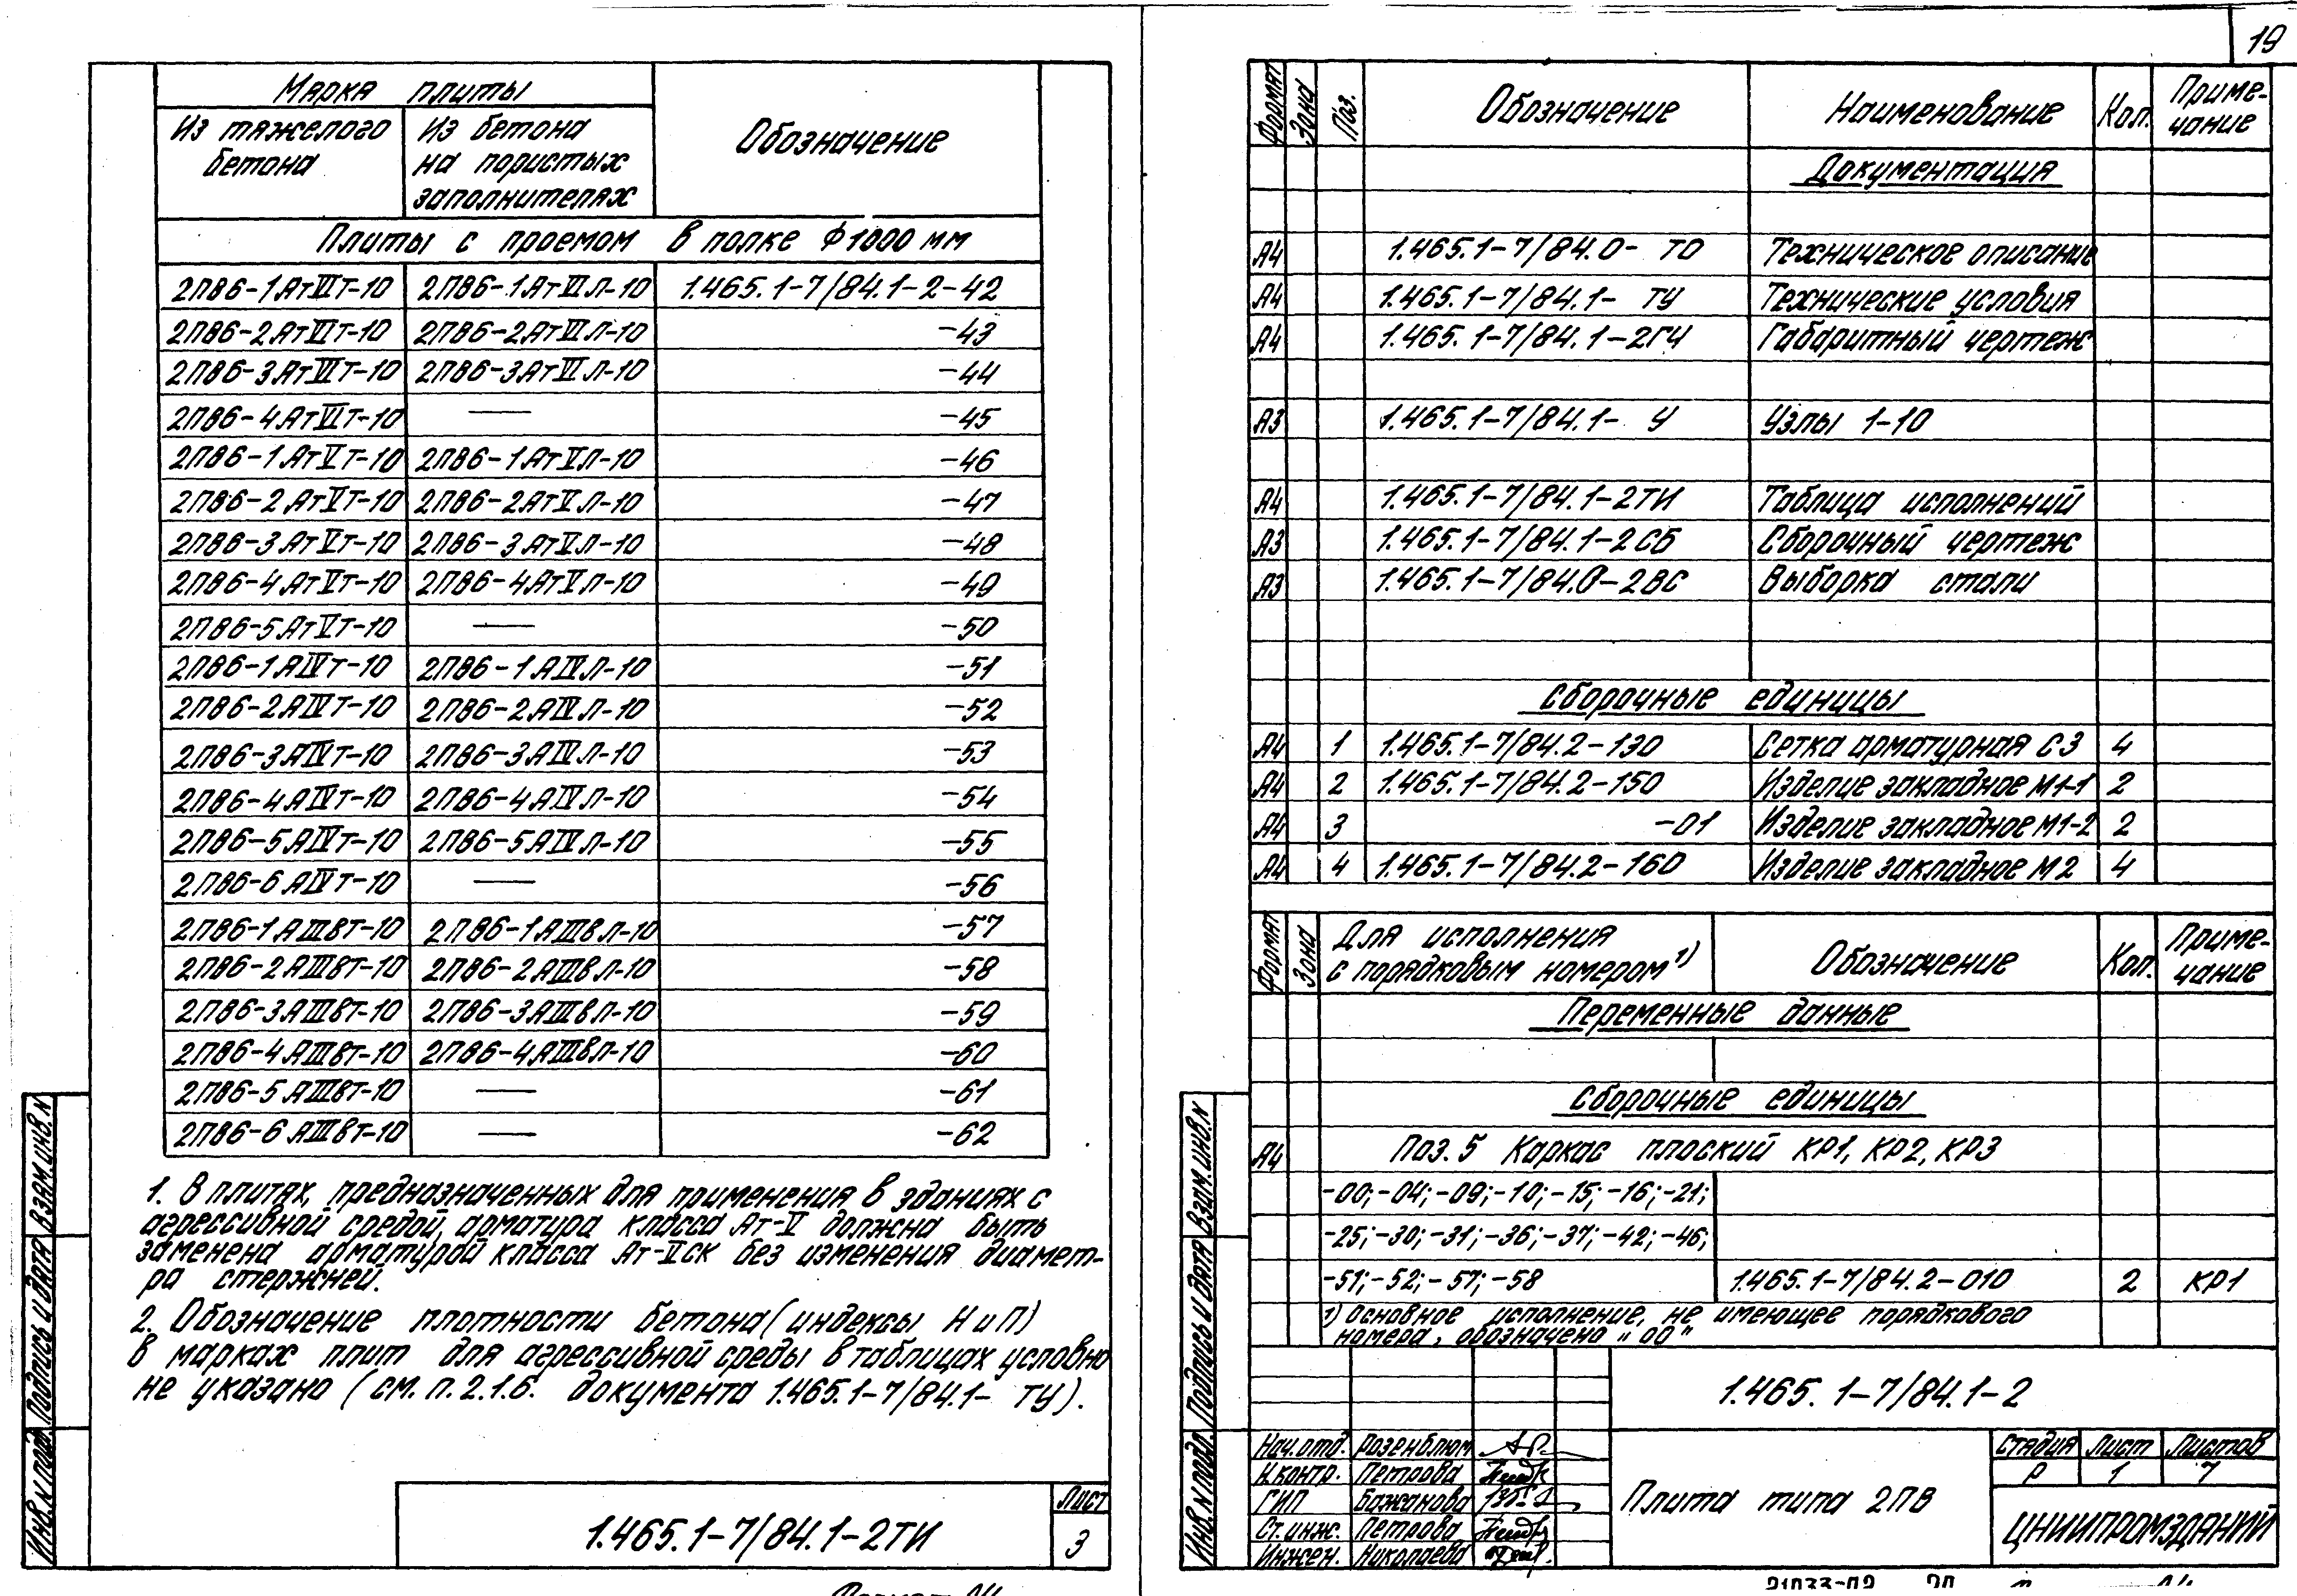 19
Марка плиты
Обозначение
Из тяжелого бетона
Из бетона на пористых заполнителях
Плиты с проемом в полке ϕ1000 мм
2ПВ6-1АтVIТ-10 2ПВ6-1АтVIП-10 1.465.1-7/84.1-2-42
2ПВ6-2АтVIТ-10 2ПВ6-2АтVIП-10 -43
2ПВ6-3АтVIТ-10 2ПВ6-3АтVIП-10 -44
2ПВ6-4АтVIТ-10 — -45
2ПВ6-1АтVТ-10 2ПВ6-1АтVП-10 -46
2ПВ6-2АтVТ-10 2ПВ6-2АтVП-10 -47
2ПВ6-3АтVТ-10 2ПВ6-3АтVП-10 -48
2ПВ6-4АтVТ-10 2ПВ6-4АтVП-10 -49
2ПВ6-5АтVТ-10 — -50
2ПВ6-1АIVТ-10 2ПВ6-1АIVП-10 -51
2ПВ6-2АIVТ-10 2ПВ6-2АIVП-10 -52
2ПВ6-3АIVТ-10 2ПВ6-3АIVП-10 -53
2ПВ6-4АIVТ-10 2ПВ6-4АIVП-10 -54
2ПВ6-5АIVТ-10 2ПВ6-5АIVП-10 -55
2ПВ6-6АIVТ-10 — -56
2ПВ6-1АIIIвТ-10 2ПВ6-1АIIIвП-10 -57
2ПВ6-2АIIIвТ-10 2ПВ6-2АIIIвП-10 -58
2ПВ6-3АIIIвТ-10 2ПВ6-3АIIIвП-10 -59
2ПВ6-4АIIIвТ-10 2ПВ6-4АIIIвП-10 -60
2ПВ6-5АIIIвТ-10 — -61
2ПВ6-6АIIIвТ-10 — -62
1. В плитах, предназначенных для применения в зданиях с
агрессивной средой, арматура класса Ат-V должна быть
заменена арматурой класса Ат-VСК без изменения диамет-
ра стержней.
2. Обозначение плотности бетона (индексы Н и П)
в марках плит для агрессивной среды в таблицах условно
не указано (см. п. 2.1.6. документа 1.465.1-7/84.1- ТУ).
Инв.N подл. Подпись и дата Взам.инв.N
1.465.1-7/84.1-2ТИ
Лист
3
Формат Зона Поз. Обозначение Наименование Кол. Приме-
чание
Документация
А4 1.465.1-7/84.0- ТО Техническое описание
А4 1.465.1-7/84.1- ТУ Технические условия
А4 1.465.1-7/84.1-2ГЧ Габаритный чертеж
А3 1.465.1-7/84.1- У Узлы 1-10
А4 1.465.1-7/84.1-2ТИ Таблица исполнений
А3 1.465.1-7/84.1-2СБ Сборочный чертеж
А3 1.465.1-7/84.0-2ВС Выборка стали
Сборочные единицы
А4 1 1.465.1-7/84.2-130 Сетка арматурная С3 4
А4 2 1.465.1-7/84.2-150 Изделие закладное М1-1 2
А4 3 -01 Изделие закладное М1-2 2
А4 4 1.465.1-7/84.2-160 Изделие закладное М2 4
Формат Зона Для исполнения
с порядковым номером 1) Обозначение Кол. Приме-
чание
Переменные данные
Сборочные единицы
А4 Поз. 5 Каркас плоский КР1, КР2, КР3
-00;-04;-09;-10;-15;-16;-21;
-25;-30;-31;-36;-37;-42;-46;
-51;-52;-57;-58 1.465.1-7/84.2-010 2 КР1
1) Основное исполнение, не имеющее порядкового
номера, обозначено „00"
Инв.N подл. Подпись и дата Взам.инв.N
1.465.1-7/84.1-2
Нач.отд. Розенблюм
Н.контр. Петрова
ГИП Бажанова
Ст.инж. Петрова
Инжен. Николаева
Плита типа 2ПВ
Стадия Лист Листов
Р 1 7
ЦНИИПРОМЗДАНИЙ